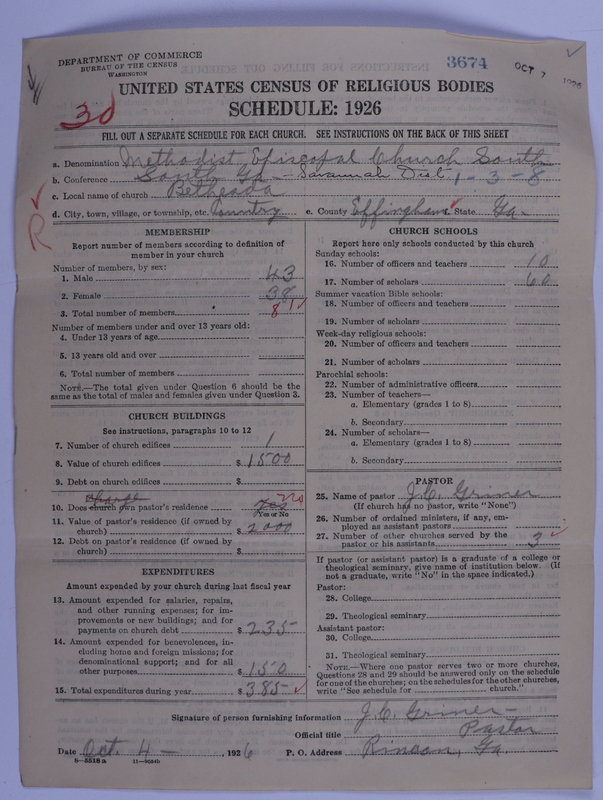 DEPARTMENT OF COMMERCE
BUREAU OF THE CENSUS
WASHINGTON
3674
OCT 7 1926
UNITED STATES CENSUS OF RELIGIOUS BODIES
SCHEDULE: 1926
3d
FILL OUT A SEPARATE SCHEDULE FOR EACH CHURCH. SEE INSTRUCTIONS ON THE BACK OF THIS SHEET
a. Denomination Methodist Episcopal Church South
b. Conference South Ga - Savannah Dist. 1-3-8
c. Local name of church Bethesda
d. City, town, village, or township, etc. Country e. County Effingham State Ga-
R
MEMBERSHIP
Report number of members according to definition of member in your church
Number of members, by sex:
1. Male 43
2. Female 38
3. Total number of members 81
Number of members under and over 13 years old:
4. Under 13 years of age
5. 13 years old and over
6. Total number of members
NOTE.—The total given under Question 6 should be the same as the total of males and females given under Question 3.
CHURCH BUILDINGS
See instructions, paragraphs 10 to 12
7. Number of church edifices 1
8. Value of church edifices $ 1500
9. Debt on church edifices $
Charge
10. Does church own pastor's residence Yes no
Yes or No
11. Value of pastor's residence (if owned by church) $ 2000
12. Debt on pastor's residence (if owned by church) $
EXPENDITURES
Amount expended by your church during last fiscal year
13. Amount expended for salaries, repairs, and other running expenses; for improvements or new buildings; and for payments on church debt $ 235
14. Amount expended for benevolences, including home and foreign missions; for denominational support; and for all other purposes $ 150
15. Total expenditures during year $ 385
CHURCH SCHOOLS
Report here only schools conducted by this church
Sunday schools:
16. Number of officers and teachers 10
17. Number of scholars 60
Summer vacation Bible schools:
18. Number of officers and teachers
19. Number of scholars
Week-day religious schools:
20. Number of officers and teachers
21. Number of scholars
Parochial schools:
22. Number of administrative officers
23. Number of teachers—
a. Elementary (grades 1 to 8)
b. Secondary
24. Number of scholars—
a. Elementary (grades 1 to 8)
b. Secondary
PASTOR
25. Name of pastor J. C. Griner
(If church has no pastor, write "None")
26. Number of ordained ministers, if any, employed as assistant pastors
27. Number of other churches served by the pastor or his assistants 3
If pastor (or assistant pastor) is a graduate of a college or theological seminary, give name of institution below. (If not a graduate, write "No" in the space indicated.)
Pastor:
28. College
29. Theological seminary
Assistant pastor:
30. College
31. Theological seminary
NOTE.—Where one pastor serves two or more churches, Questions 28 and 29 should be answered only on the schedule for one of the churches; on the schedules for the other churches, write "See schedule for church."
Signature of person furnishing information J. C. Griner-
Official title Pastor
Date Oct. 4 - , 1926 P. O. Address Rincon, Ga
8-5518a 11-9034b